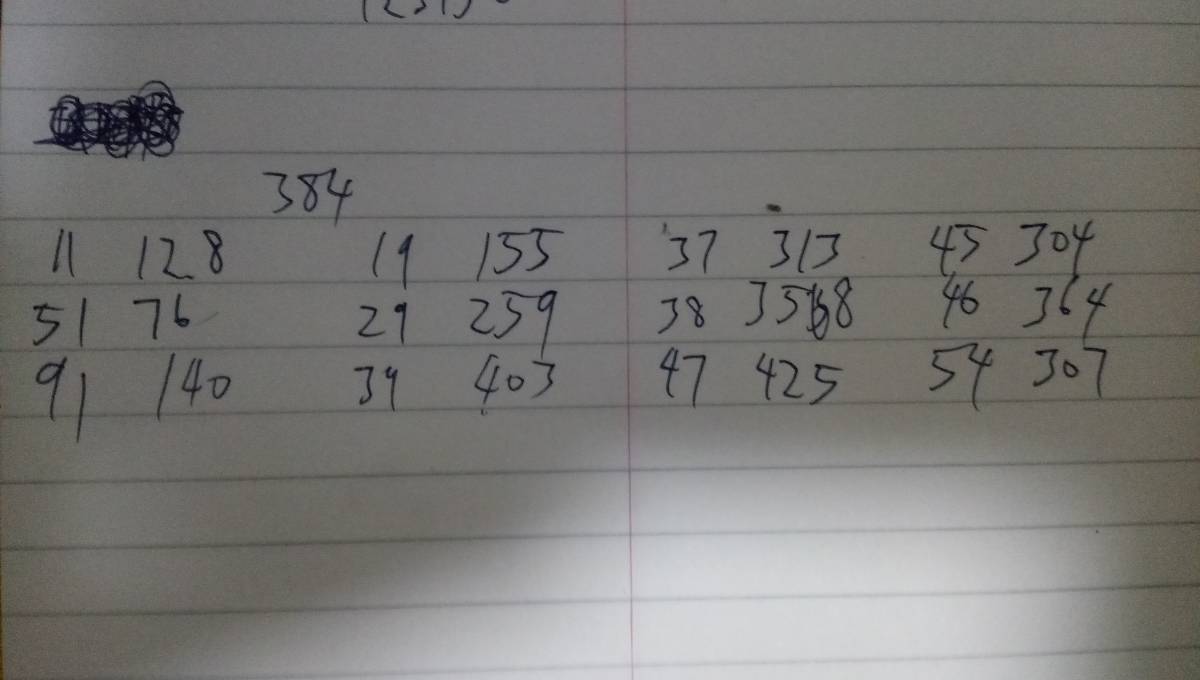 384
11 128 19 155 37 313 45 304
51 76 29 259 38 3568 46 364
91 140 39 403 47 425 54 307